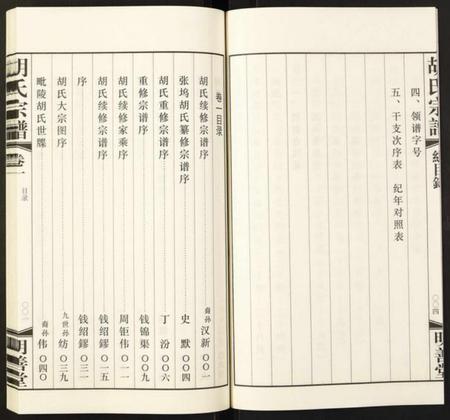 胡氏宗譜
總目錄
〇〇四
明善堂
四、领谱字号
五、干支次序表 纪年对照表
卷一目录
胡氏续修宗谱序 裔孙 汉新 〇〇一
张坞胡氏纂修宗谱序 史默 〇〇四
胡氏重修宗谱序 丁汾 〇〇六
重修宗谱序 钱锦渠 〇〇九
胡氏续修家乘序 周钜伟 〇一
胡氏续修宗谱序 钱绍鏐 〇一五
序 钱绍鏐 〇三一
胡氏大宗图序 九世孙 纺 〇三九
毗陵胡氏世牒 裔孙 伟 〇四〇
胡氏宗譜
卷一
目录
明善堂